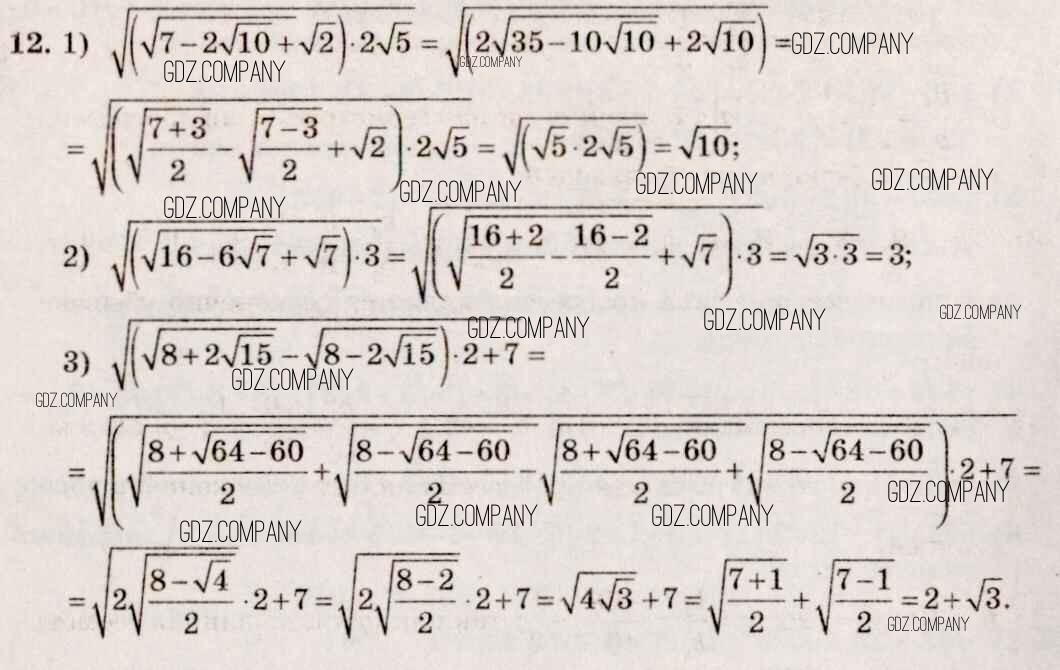 12. 1) √((√(7−2√10)+√2)·2√5) = √((2√(35−10√10)+2√10)) = GDZ.COMPANY
GDZ.COMPANY GDZ.COMPANY
= √((√((7+3)/2) − √((7−3)/2) + √2)·2√5) = √((√5·2√5)) = √10;
GDZ.COMPANY GDZ.COMPANY GDZ.COMPANY
GDZ.COMPANY
2) √((√(16−6√7)+√7)·3) = √((√((16+2)/2 − (16−2)/2) + √7)·3) = √(3·3) = 3;
GDZ.COMPANY GDZ.COMPANY GDZ.COMPANY
3) √((√(8+2√15) − √(8−2√15))·2+7 =
GDZ.COMPANY
GDZ.COMPANY
= √((√((8+√(64−60))/2) + √((8−√(64−60))/2) √((8+√(64−60))/2) + √((8−√(64−60))/2))·2+7 =
GDZ.COMPANY
GDZ.COMPANY GDZ.COMPANY GDZ.COMPANY
= √(2√((8−√4)/2)·2+7 = √(2√((8−2)/2)·2+7 = √(4√3)+7 = √((7+1)/2) + √((7−1)/2) = 2+√3.
GDZ.COMPANY